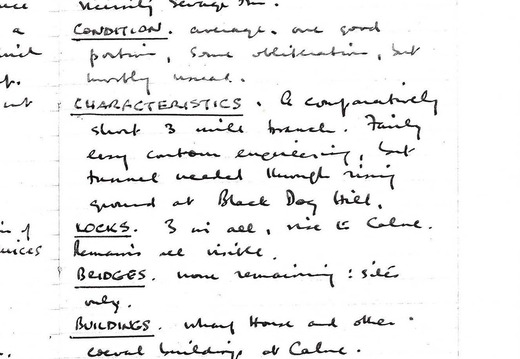 CONDITION. average. one good
portion, some obliteration, but
mostly unread.
CHARACTERISTICS. A comparatively
short 3 mile branch. Fairly
easy contour engineering, but
tunnel needed through rising
ground at Black Dog Hill.
LOCKS. 3 in all, rise to Calne.
Remains all visible.
BRIDGES. none remaining: sites
only.
BUILDINGS. Wharf House and other
coeval buildings at Calne.